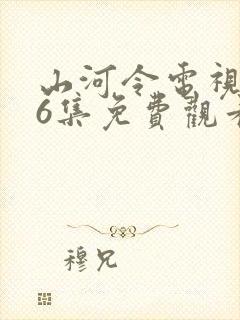 山河令電視
6集免費觀看
穆兄